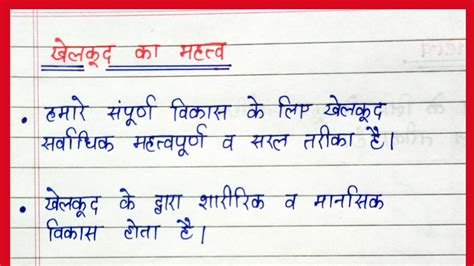 खेलकूद का महत्व
• हमारे संपूर्ण विकास के लिए खेलकूद
सर्वाधिक महत्वपूर्ण व सरल तरीका है।
• खेलकूद के द्वारा शारीरिक व मानसिक
विकास होता है।